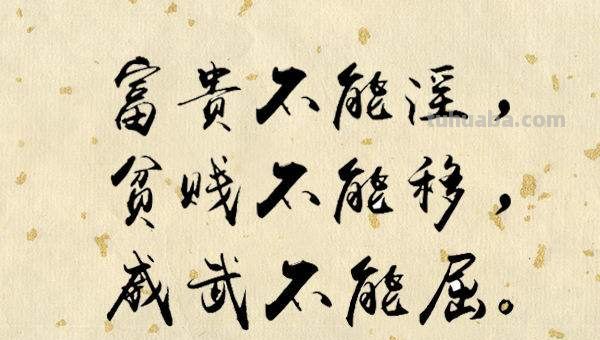 富貴不能淫，
貧贱不能移，
威武不能屈。
tuhuaba.com